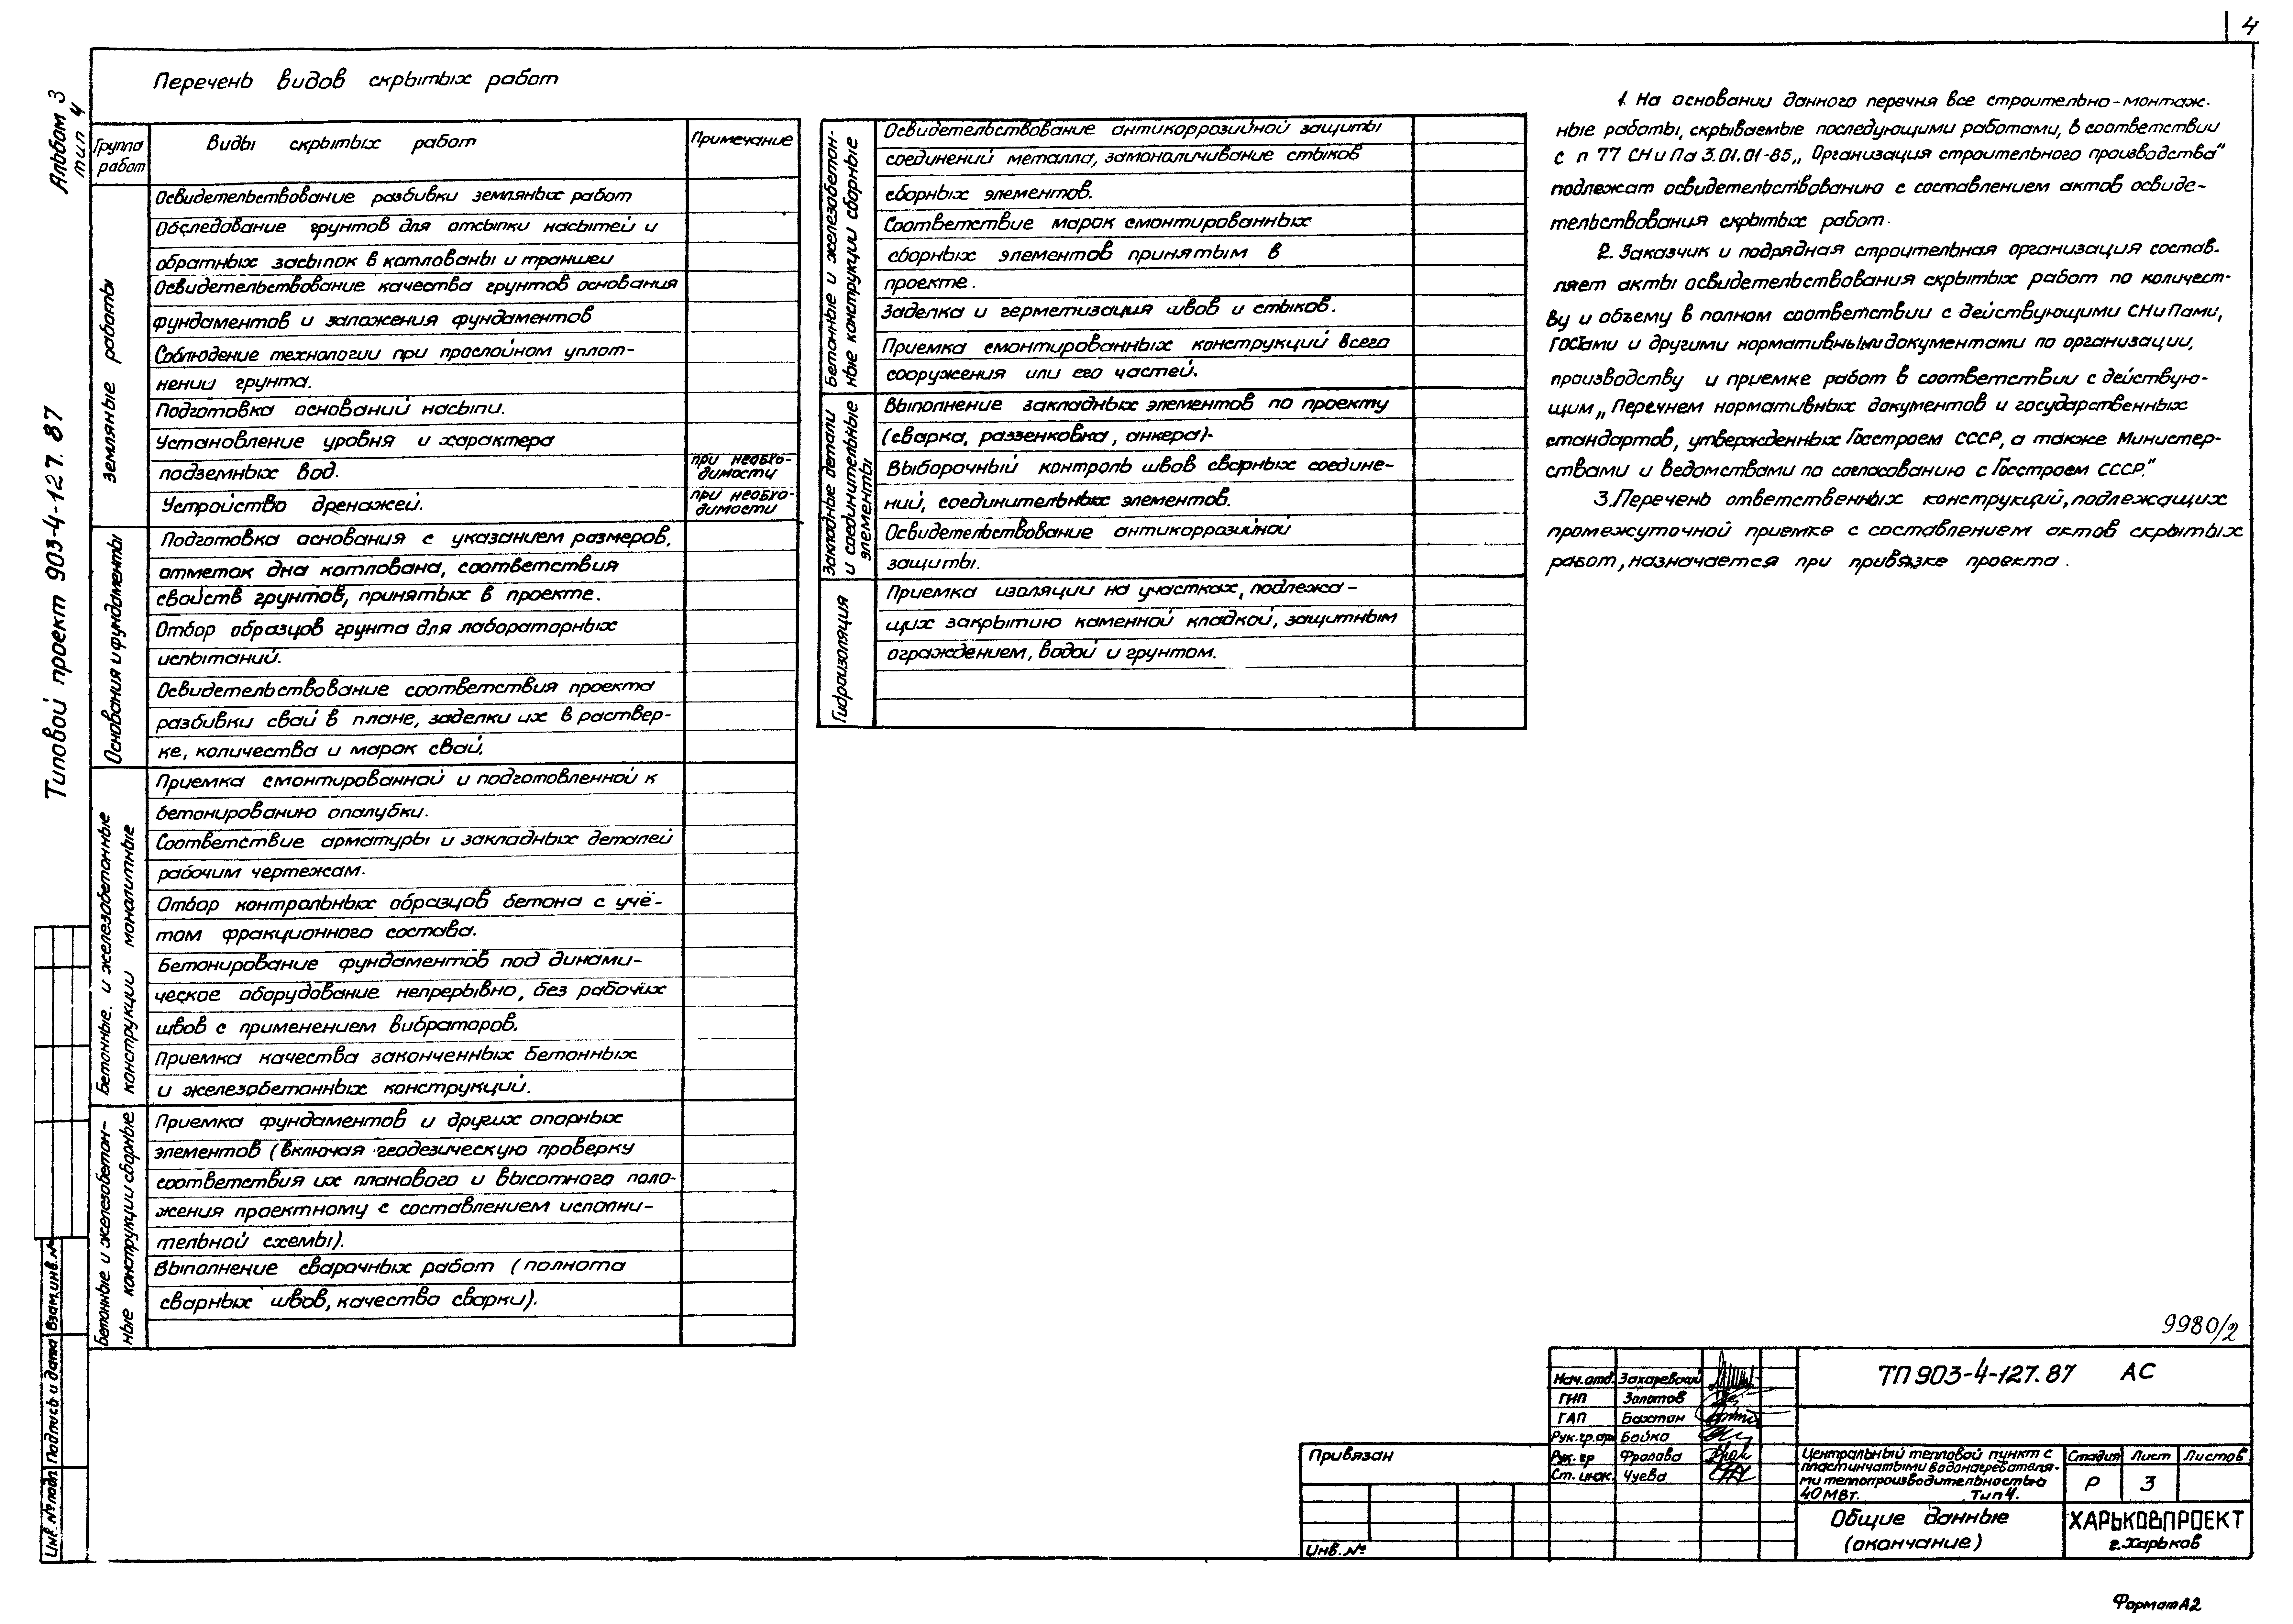 4
Альбом 3
тип 4
Типовой проект 903-4-127.87
Перечень видов скрытых работ
Группа работ
Виды скрытых работ
Примечание
Земляные работы
Освидетельствование разбивки земляных работ
Обследование грунтов для отсыпки насыпей и
обратных засыпок в котлованы и траншеи
Освидетельствование качества грунтов основания
фундаментов и заложения фундаментов
Соблюдение технологии при прослойном уплот-
нении грунта.
Подготовка оснований насыпи.
Установление уровня и характера
подземных вод.
при необхо-
димости
Устройство дренажей.
при необхо-
димости
Основания и фундаменты
Подготовка основания с указанием размеров,
отметок дна котлована, соответствия
свойств грунтов, принятых в проекте.
Отбор образцов грунта для лабораторных
испытаний.
Освидетельствование соответствия проекта
разбивки свай в плане, заделки их в раствер-
ке, количества и марок свай.
Бетонные и железобетонные
конструкции монолитные
Приемка смонтированной и подготовленной к
бетонированию опалубки.
Соответствие арматуры и закладных деталей
рабочим чертежам.
Отбор контрольных образцов бетона с учё-
том фракционного состава.
Бетонирование фундаментов под динами-
ческое оборудование непрерывно, без рабочих
швов с применением вибраторов.
Приемка качества законченных бетонных
и железобетонных конструкций.
Бетонные и железобетон-
ные конструкции сборные
Приемка фундаментов и других опорных
элементов (включая геодезическую проверку
соответствия их планового и высотного поло-
жения проектному с составлением исполни-
тельной схемы).
Выполнение сварочных работ (полнота
сварных швов, качество сварки).
Бетонные и железобетон-
ные конструкции сборные
Освидетельствование антикоррозийной защиты
соединений металла, замоноличивание стыков
сборных элементов.
Соответствие марок смонтированных
сборных элементов принятым в
проекте.
Заделка и герметизация швов и стыков.
Приемка смонтированных конструкций всего
сооружения или его частей.
Закладные детали
и соединительные
элементы
Выполнение закладных элементов по проекту
(сварка, раззенковка, анкера).
Выборочный контроль швов сварных соедине-
ний, соединительных элементов.
Освидетельствование антикоррозийной
защиты.
Гидроизоляция
Приемка изоляции на участках, подлежа-
щих закрытию каменной кладкой, защитным
ограждением, водой и грунтом.
1. На основании данного перечня все строительно-монтаж-
ные работы, скрываемые последующими работами, в соответствии
с п 77 СНиПа 3.01.01-85 „Организация строительного производства"
подлежат освидетельствованию с составлением актов освиде-
тельствования скрытых работ.
2. Заказчик и подрядная строительная организация состав-
ляет акты освидетельствования скрытых работ по количест-
ву и объему в полном соответствии с действующими СНиПами,
ГОСТами и другими нормативными документами по организации,
производству и приемке работ в соответствии с действую-
щим „Перечнем нормативных документов и государственных
стандартов, утвержденных Госстроем СССР, а также Министер-
ствами и ведомствами по согласованию с Госстроем СССР."
3. Перечень ответственных конструкций, подлежащих
промежуточной приемке с составлением актов скрытых
работ, назначается при привязке проекта.
9980/2
Взам.инв.№
Подпись и дата
Инв. № подл
Привязан
Инв. №
Нач.отд. Захаревский
ГИП Золотов
ГАП Бахтин
Рук.гр.арх Бойко
Рук. гр Фролова
Ст. инж. Чуева
ТП 903-4-127.87 АС
Центральный тепловой пункт с
пластинчатыми водонагревателя-
ми теплопроизводительностью
40 МВт. Тип 4.
Стадия Лист Листов
Р 3
Общие данные
(окончание)
ХАРЬКОВПРОЕКТ
г. Харьков
Формат А2